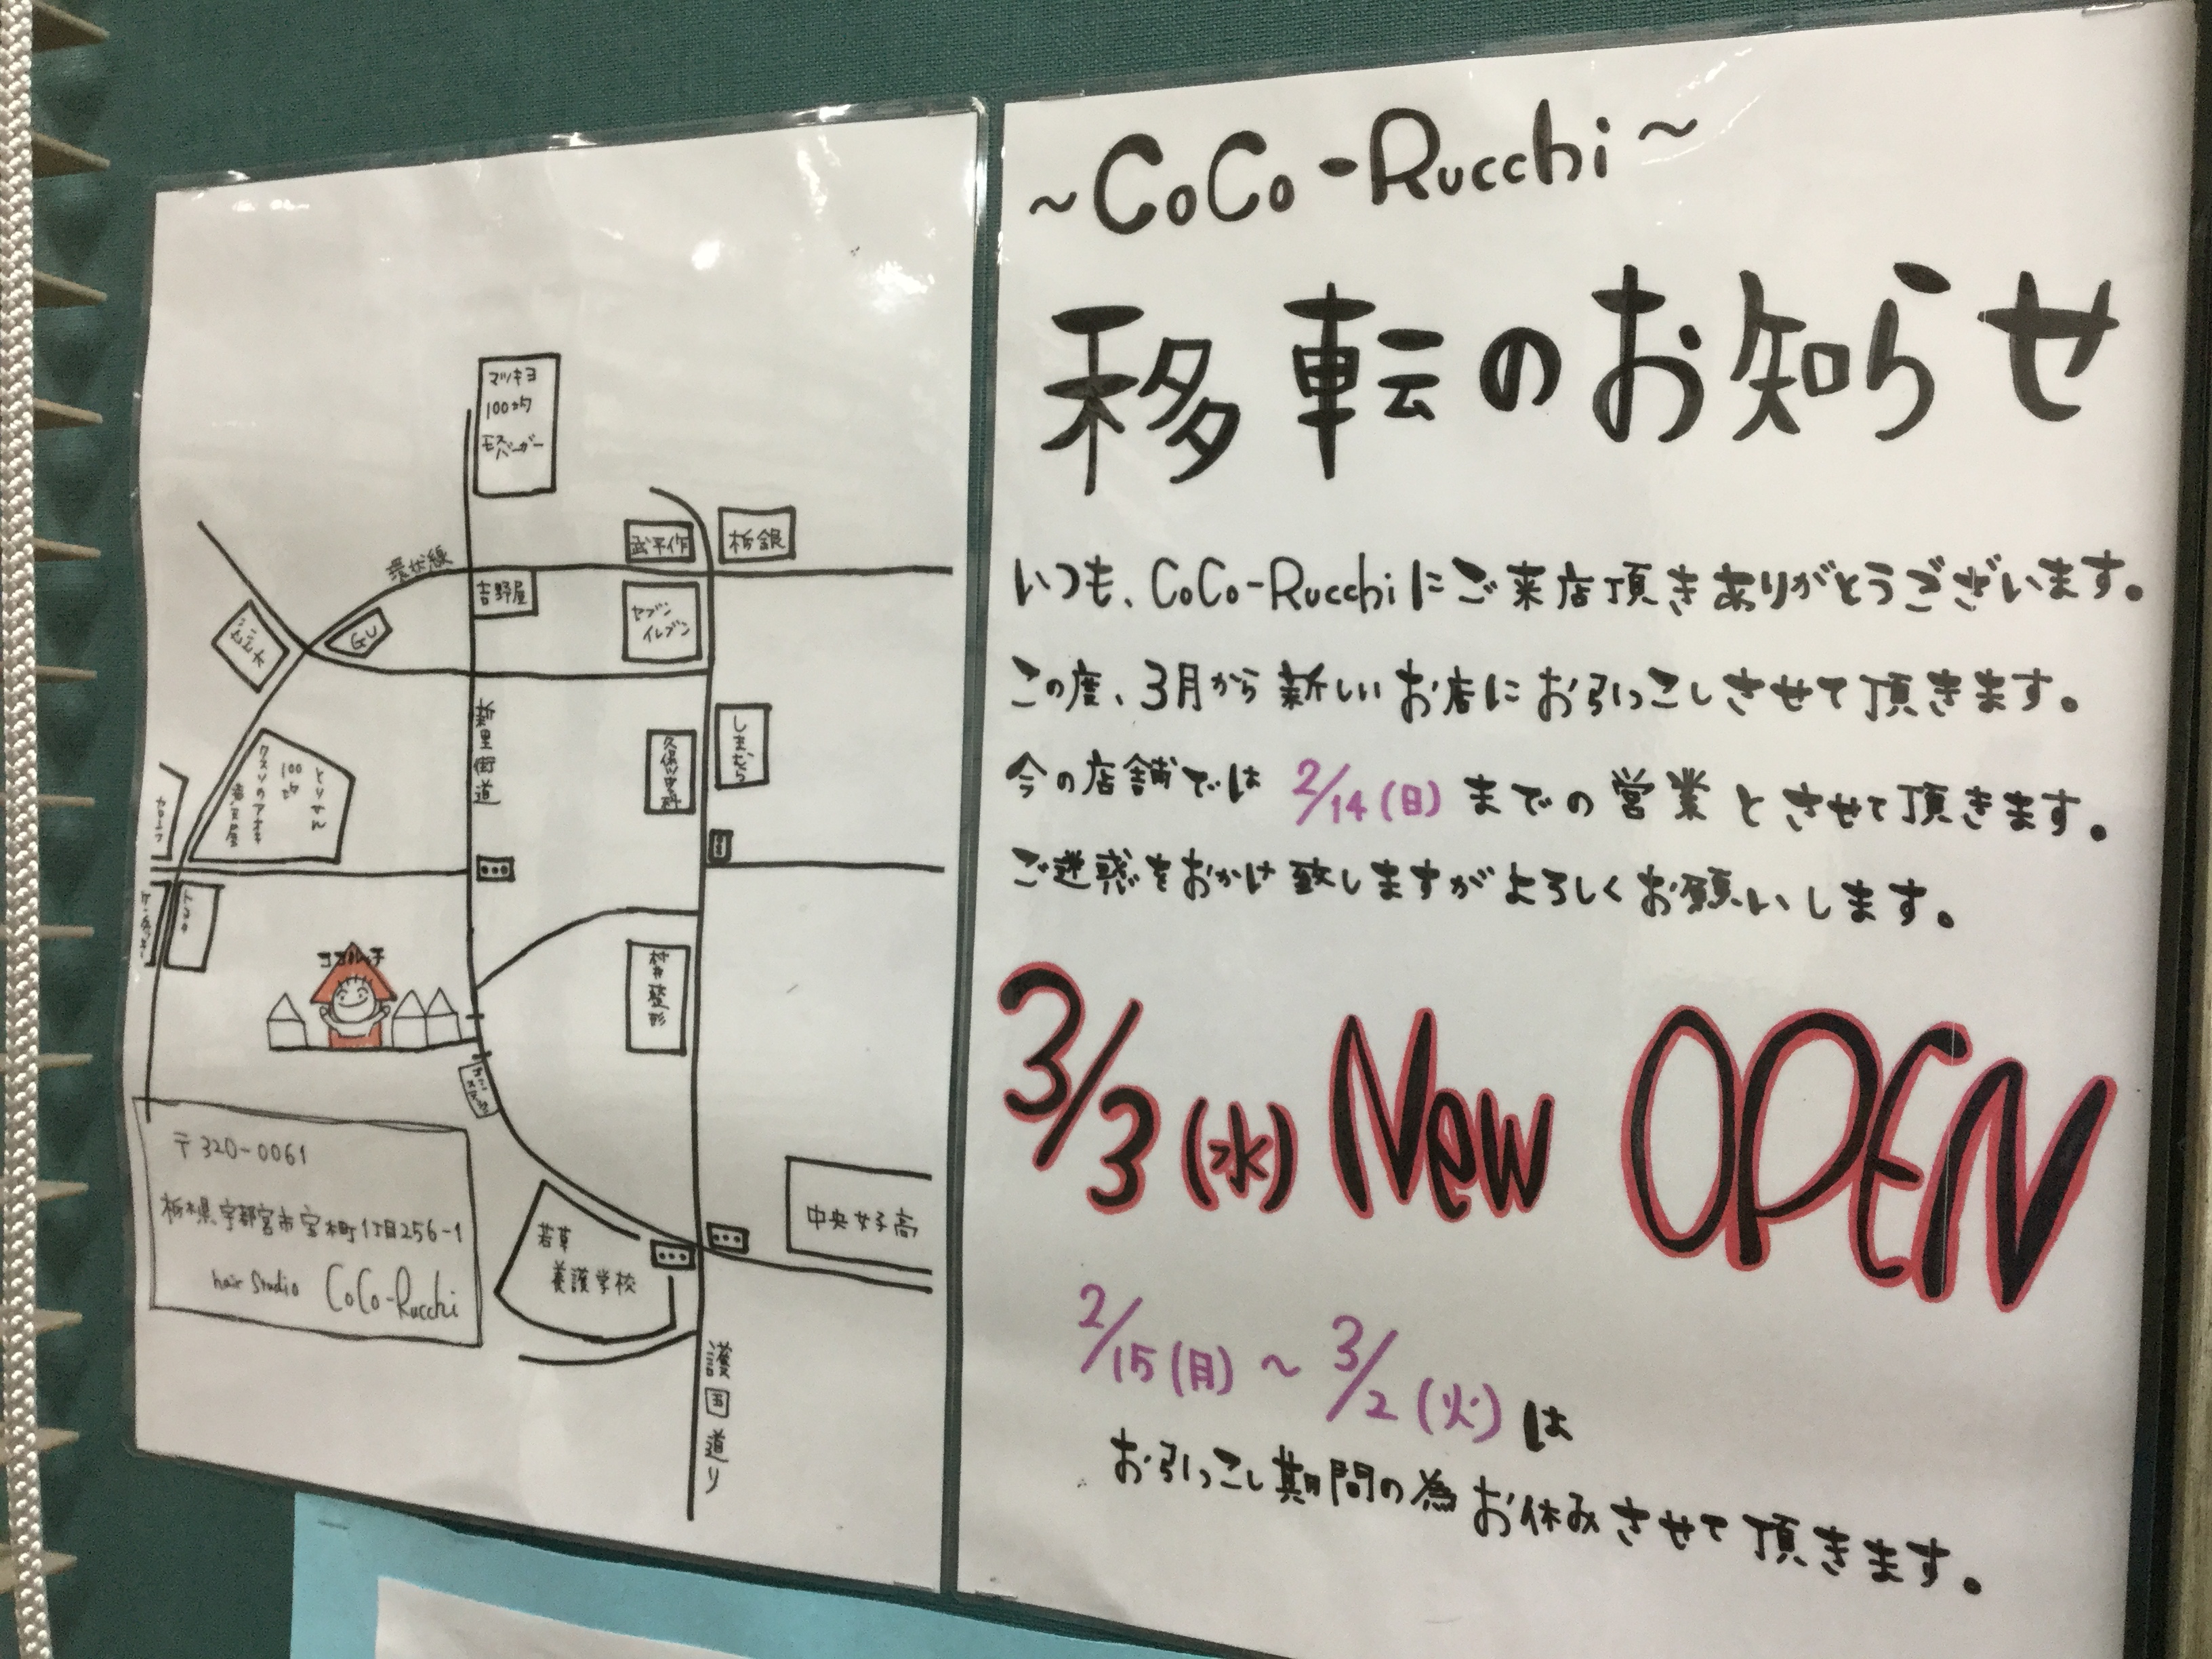 ~CoCo-Rucchi~
移転のお知らせ
いつも、CoCo-Rucchiにご来店頂きありがとうございます。
この度、3月から新しいお店にお引っこしさせて頂きます。
今の店舗では 2/14(日) までの営業とさせて頂きます。
ご迷惑をおかけ致しますがよろしくお願いします。
3/3(水) New OPEN
2/15(月) ~ 3/2(火)は
お引っこし期間の為お休みさせて頂きます。
マツキヨ
100均
モスバーガー
環状線
武平作
栃銀
吉野屋
セブン
イレブン
GU
新里街道
しまむら
とりせん
100均
クスリのアオキ
ココルッチ
村井整形
中央女子高
若草
養護学校
護国通り
〒320-0061
栃木県宇都宮市宝木町1丁目256-1
hair Studio CoCo-Rucchi